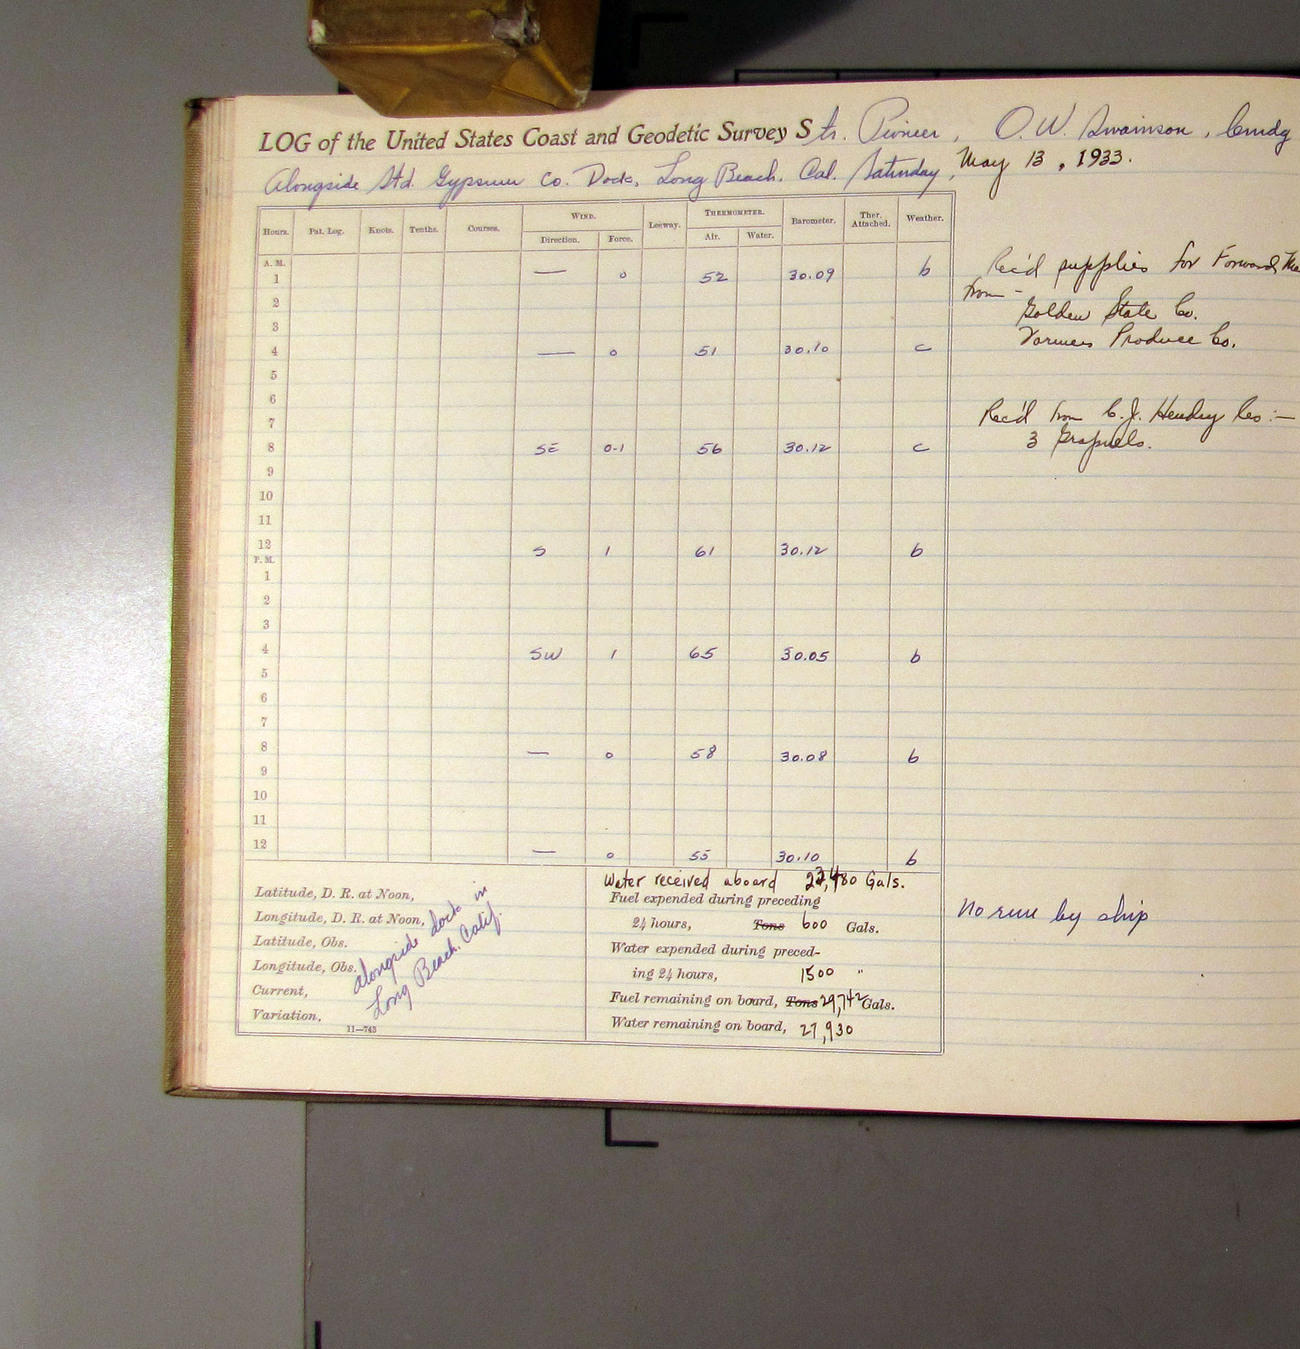 LOG of the United States Coast and Geodetic Survey Str. Pioneer, O. W. Swainson, Comdg
Alongside Std. Gypsum Co. Dock, Long Beach, Cal. Saturday, May 13, 1933.
Hours. Pat. Log. Knots. Tenths. Courses. WIND. Leeway. THERMOMETER. Barometer. Ther. Attached. Weather.
Direction. Force. Air. Water.
A. M.
1 — 0 52 30.09 b
2
3
4 — 0 51 30.10 c
5
6
7
8 SE 0-1 56 30.12 c
9
10
11
12 S 1 61 30.12 b
P. M.
1
2
3
4 SW 1 65 30.05 b
5
6
7
8 — 0 58 30.08 b
9
10
11
12 — 0 55 30.10 b
Rec'd supplies for Forward
from -
Golden State Co.
Produce Co.
Rec'd from C. J. Hendry Co :—
3 Grapnels.
Latitude, D. R. at Noon,
Longitude, D. R. at Noon,
Latitude, Obs.
Longitude, Obs.
Current,
Variation,
alongside dock in
Long Beach. Calif.
11—745
Water received aboard Gals.
Fuel expended during preceding
24 hours, Tons 600 Gals.
Water expended during preced-
ing 24 hours, 1500 "
Fuel remaining on board, Tons 29,742 Gals.
Water remaining on board, 27,930
No run by ship